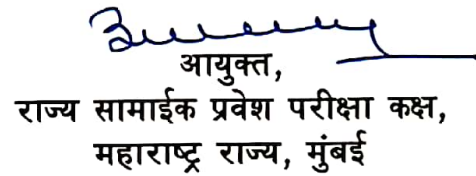 आयुक्त,
राज्य सामाईक प्रवेश परीक्षा कक्ष,
महाराष्ट्र राज्य, मुंबई